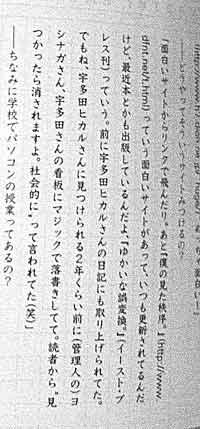 ――どうやってそういうサイトみつけるの？
「面白いサイトからリンクで飛んだり。あと『僕の見た秩序。』(http://www.
dfnt.net/t.html)っていう面白いサイトがあって、いつも更新されてるんだ
けど、最近本とかも出版しているんだよ、『ゆかいな誤変換。』（イースト・プ
レス刊）っていう。前に宇多田ヒカルさんの日記にも取り上げられてた。
でもね、宇多田ヒカルさんに見つけられる2年くらい前に（管理人の）ヨ
シナガさん、宇多田さんの看板にマジックで落書きしてて。読者から〝見
つかったら消されますよ。社会的に〟って言われてた（笑）」
――ちなみに学校でパソコンの授業ってあるの？